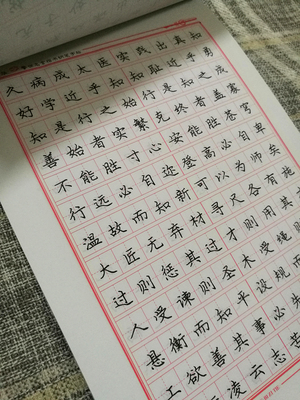 久病成太医实践出真知
好学近乎知知耻近乎勇
知是行之始行是知之成
善始者实繁克终者盖寡
不能胜寸心安能胜苍穹
行远必自迩登高必自卑
温故而知新可以为师矣
大匠无弃材寻尺各有施
过则惩其过才则用其
人受谏则圣木受绳则
悬衡而知平设规而
工欲善其事必
凌云志